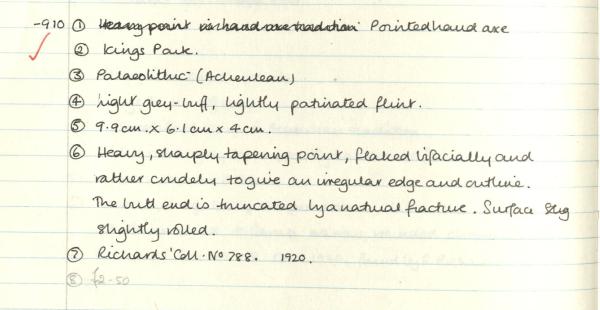 -910 ① Heavy point in hand axe tradition Pointed hand axe
② Kings Park.
③ Palaeolithic (Acheulean)
④ Light grey-buff, lightly patinated flint.
⑤ 9.9cm. x 6.1cm x 4cm.
⑥ Heavy, sharply tapering point, flaked bifacially and
rather crudely to give an irregular edge and outline.
The butt end is truncated by a natural fracture. Surface slig
slightly rolled.
⑦ Richards' Coll. No 788. 1920.
⑧ £2-50